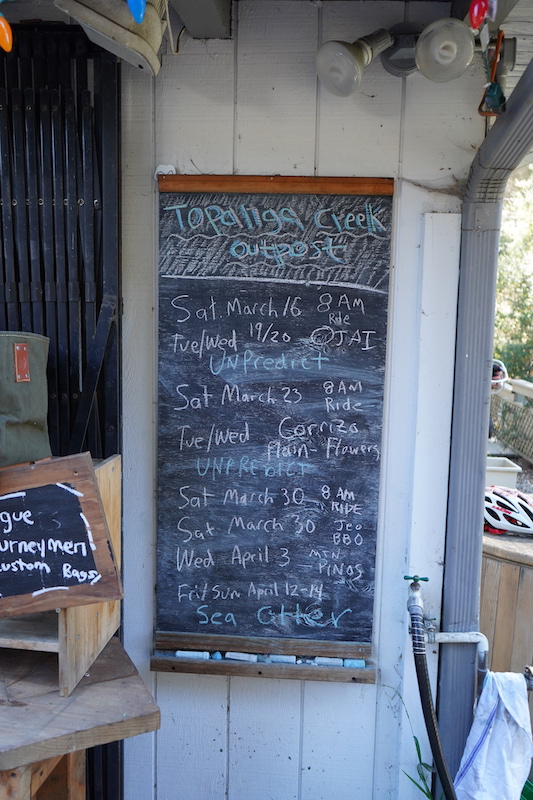 Topanga Creek
outpost
Sat. March 16 8 AM Ride
Tue/Wed 19/20 @JAI
UNPredict
Sat March 23 8 AM Ride
Tue/Wed Corrizo Plain-Flowers
UNPREDICT
Sat March 30 8 AM RIDE
Sat March 30 Jeo BBQ
Wed April 3 MTN PINOS
Fri/Sun April 12-14
Sea Otter
gue
urneymen
ustom Bags